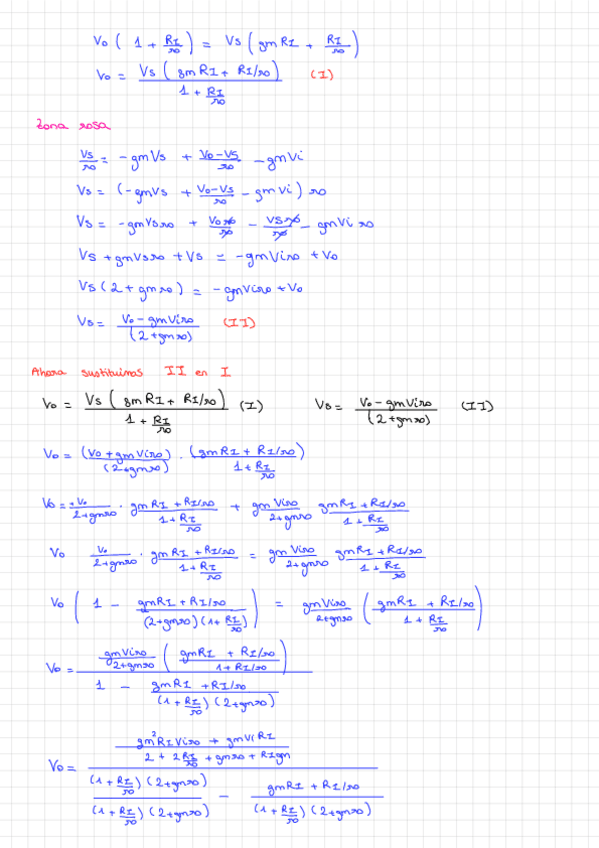 Vo ( 1 + RI/ro ) = Vs ( gmRI + RI/ro )
Vo = Vs ( gmRI + RI/ro ) / 1 + RI/ro (I)
Zona rosa
Vs/ro = -gmVs + Vo-Vs/ro - gmVi
Vs = (-gmVs + Vo-Vs/ro - gmVi) ro
Vs = -gmVsro + Voro/ro - Vsro/ro - gmVi ro
Vs + gmVsro + Vs = -gmViro + Vo
Vs (2 + gmro) = -gmViro + Vo
Vs = Vo - gmViro / (2+gmro) (II)
Ahora sustituimos II en I
Vo = Vs ( gmRI + RI/ro ) / 1 + RI/ro (I) Vs = Vo - gmViro / (2+gmro) (II)
Vo = (Vo + gmViro) / (2+gmro) · (gmRI + RI/ro) / 1 + RI/ro
Vo = +Vo / 2+gmro · gmRI + RI/ro / 1 + RI/ro + gmViro / 2+gmro gmRI + RI/ro / 1 + RI/ro
Vo Vo / 2+gmro · gmRI + RI/ro / 1 + RI/ro = gmViro / 2+gmro gmRI + RI/ro / 1 + RI/ro
Vo ( 1 - gmRI + RI/ro / (2+gmro)(1+ RI/ro) ) = gmViro / 2+gmro ( gmRI + RI/ro / 1 + RI/ro )
Vo = gmViro / 2+gmro ( gmRI + RI/ro / 1 + RI/ro ) / 1 - gmRI + RI/ro / (1+ RI/ro)(2+gmro)
Vo = gm²RIViro + gmViRI / 2 + 2RI/ro + gmro + RIgm / (1+ RI/ro)(2+gmro) / (1+ RI/ro)(2+gmro) - gmRI + RI/ro / (1+ RI/ro)(2+gmro)